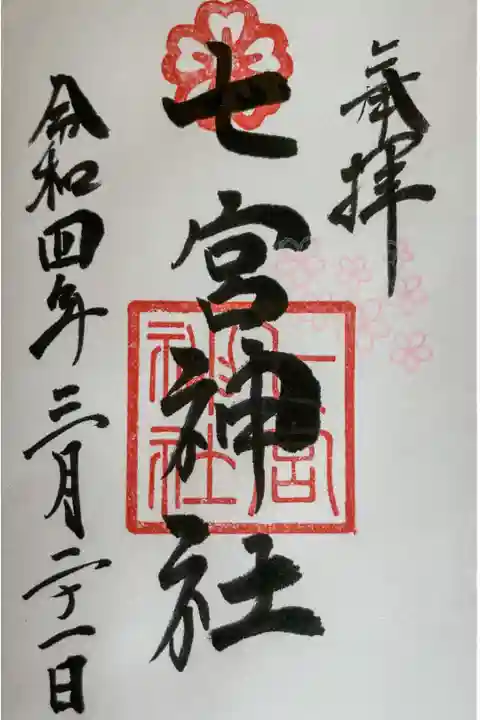 奉拝
七宮神社
七宮神社
令和四年三月二十一日